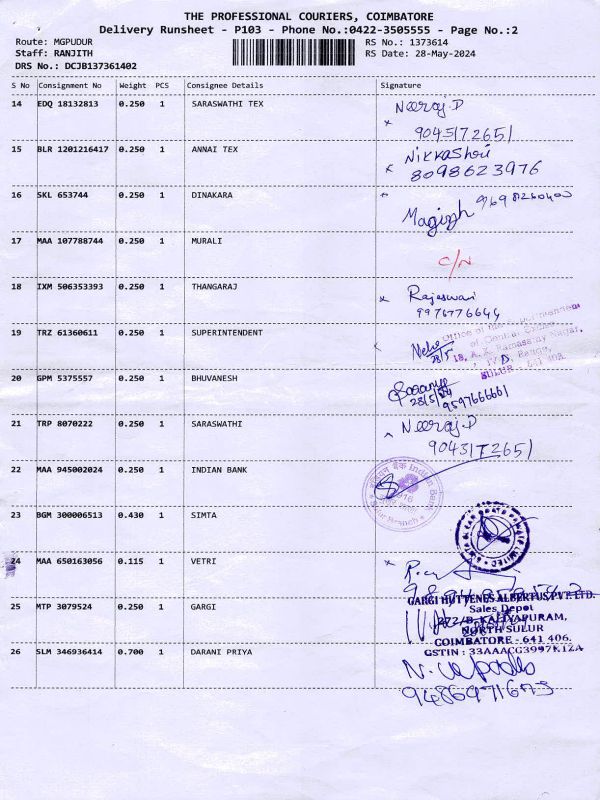 THE PROFESSIONAL COURIERS, COIMBATORE
Delivery Runsheet - P103 - Phone No.:0422-3505555 - Page No.:2
Route: MGPUDUR
RS No.: 1373614
Staff: RANJITH
RS Date: 28-May-2024
DRS No.: DCJB137361402
S No Consignment No Weight PCS Consignee Details Signature
14 EDQ 18132813 0.250 1 SARASWATHI TEX Neeraj.D
9043172651
15 BLR 1201216417 0.250 1 ANNAI TEX Nikkashri
8098623976
16 SKL 653744 0.250 1 DINAKARA Magizh
17 MAA 107788744 0.250 1 MURALI C/N
18 IXM 506353393 0.250 1 THANGARAJ Rajeswari
9976776644
19 TRZ 61360611 0.250 1 SUPERINTENDENT
Office of the Superintendent
of Central
18, A. K. Ramasamy Nagar,
SULUR - 641 402.
28/5
20 GPM 5375557 0.250 1 BHUVANESH Saranya
28/5/24
9597666661
21 TRP 8070222 0.250 1 SARASWATHI Neeraj.D
9043172651
22 MAA 945002024 0.250 1 INDIAN BANK
इंडियन बैंक Indian Bank
Sulur Branch
23 BGM 300006513 0.430 1 SIMTA
PRIVATE LIMITED
24 MAA 650163056 0.115 1 VETRI
25 MTP 3079524 0.250 1 GARGI
GARGI HUTTENES ALBERTUS PVT. LTD.
Sales Depot
272/B, KALIYAPURAM,
NORTH SULUR
COIMBATORE - 641 406.
GSTIN : 33AAACG3997K1ZA
26 SLM 346936414 0.700 1 DARANI PRIYA